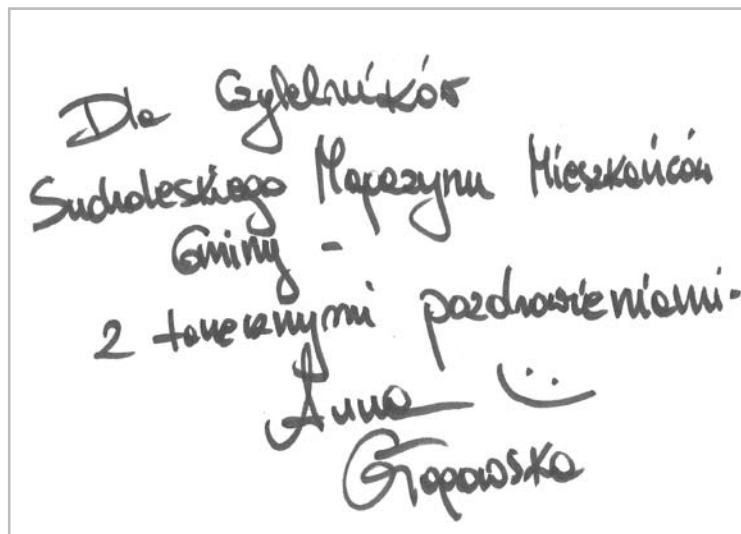 Dla Czytelników
Sucholeskiego Magazynu Mieszkańców
Gminy -
z tanecznymi pozdrowieniami -
Anna
Głogowska